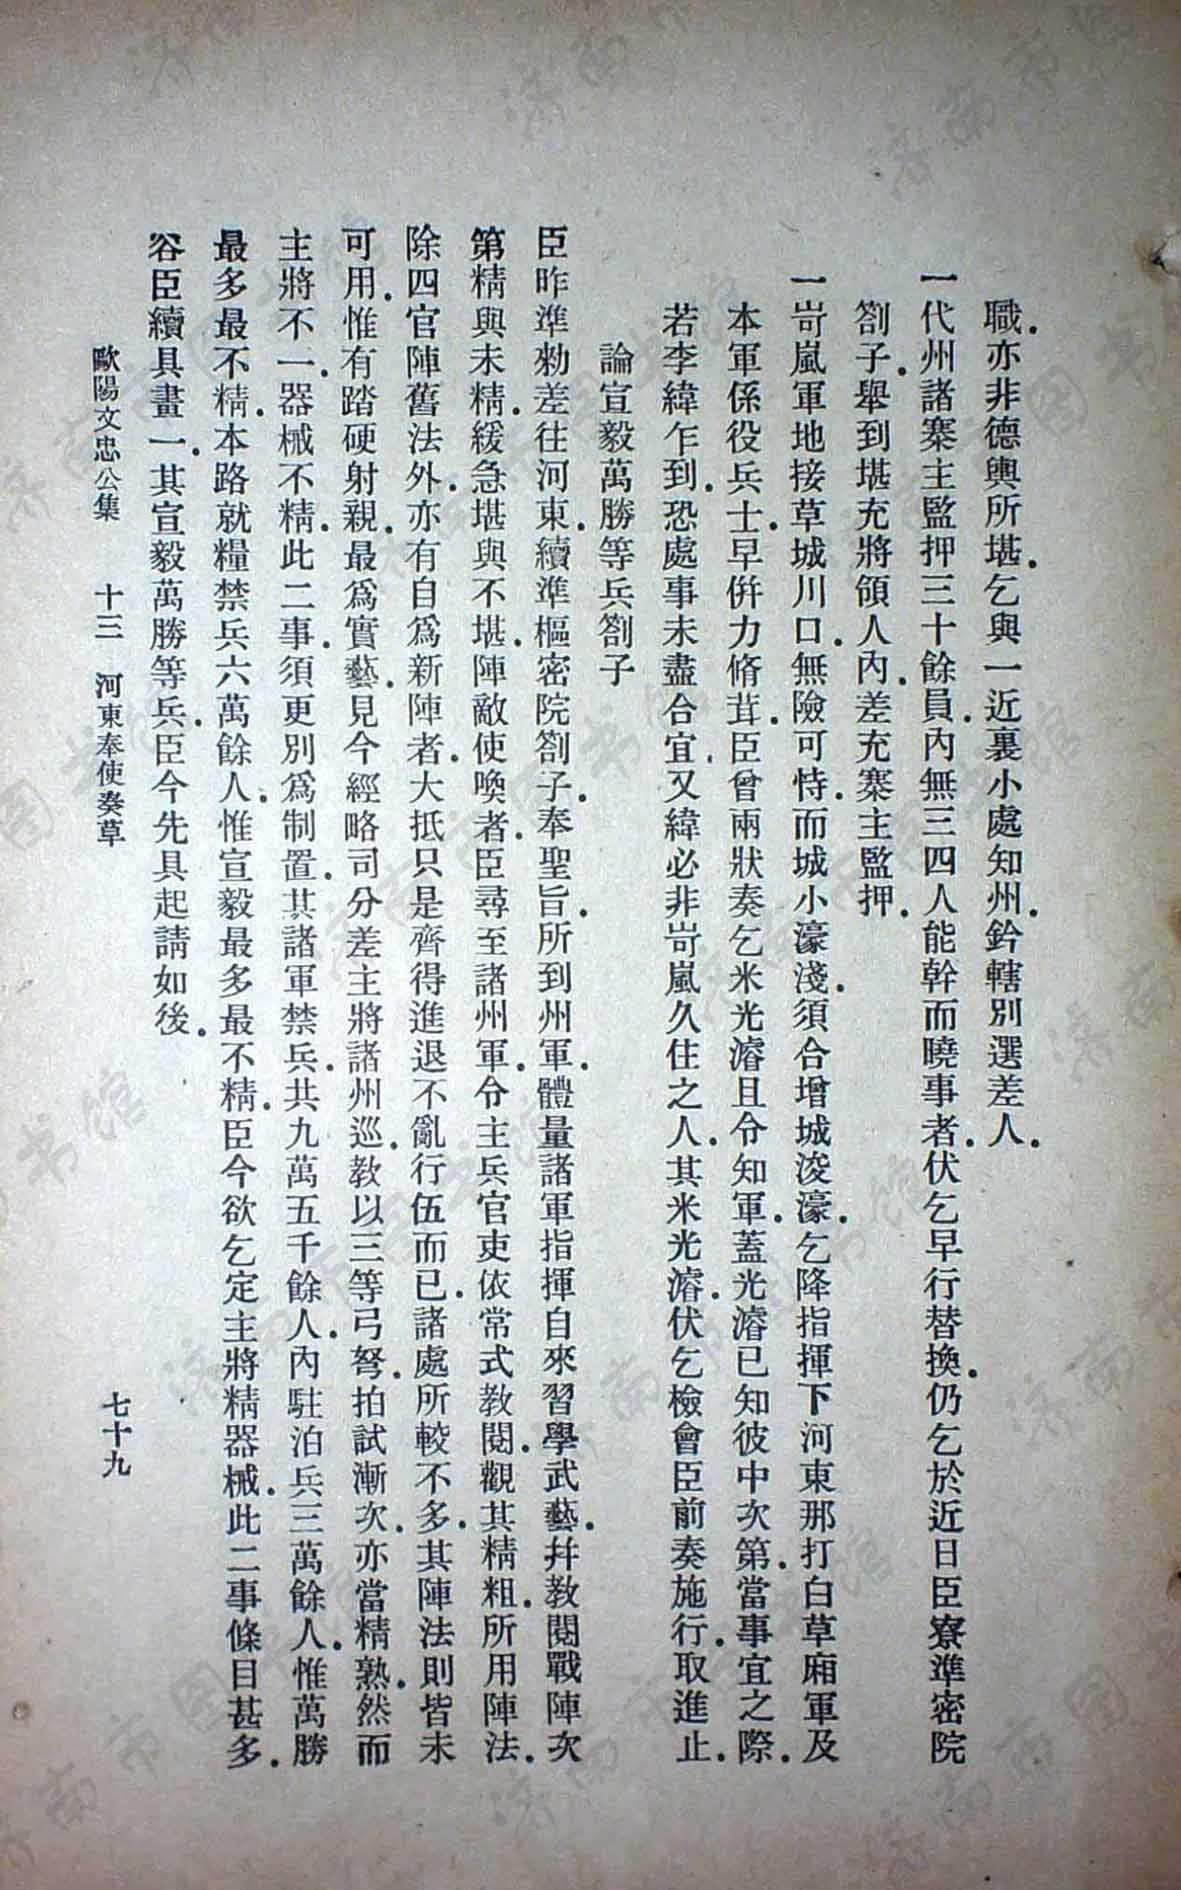 職.亦非德輿所堪.乞與一近裏小處知州.鈐轄別選差人.
一代州諸寨主監押三十餘員.內無三四人能幹而曉事者.伏乞早行替換.仍乞於近日臣寮準密院
劄子.舉到堪充將領人內.差充寨主監押.
一岢嵐軍地接草城川口.無險可恃.而城小濠淺.須合增城浚濠.乞降指揮下河東那打白草廂軍及
本軍係役兵士.早併力脩葺.臣曾兩狀奏乞米光濬且令知軍.蓋光濬已知彼中次第.當事宜之際.
若李緯乍到.恐處事未盡合宜.又緯必非岢嵐久住之人.其米光濬.伏乞檢會臣前奏施行.取進止.
論宣毅萬勝等兵劄子
臣昨準勑差往河東.續準樞密院劄子.奉聖旨.所到州軍.體量諸軍指揮自來習學武藝.幷教閱戰陣次
第精與未精.緩急堪與不堪.陣敵使喚者.臣尋至諸州軍.令主兵官吏依常式教閱.觀其精粗.所用陣法.
除四官陣舊法外.亦有自爲新陣者.大抵只是齊得進退不亂行伍而已.諸處所較不多.其陣法則皆未
可用.惟有踏硬射親.最爲實藝.見今經略司分差主將諸州巡.教以三等弓弩.拍試漸次.亦當精熟.然而
主將不一.器械不精.此二事.須更別爲制置.其諸軍禁兵.共九萬五千餘人.內駐泊兵三萬餘人.惟萬勝
最多最不精.本路就糧禁兵六萬餘人.惟宣毅最多最不精.臣今欲乞定主將精器械.此二事條目甚多.
容臣續具畫一.其宣毅萬勝等兵.臣今先具起請如後.
歐陽文忠公集 十三 河東奉使奏草 七十九